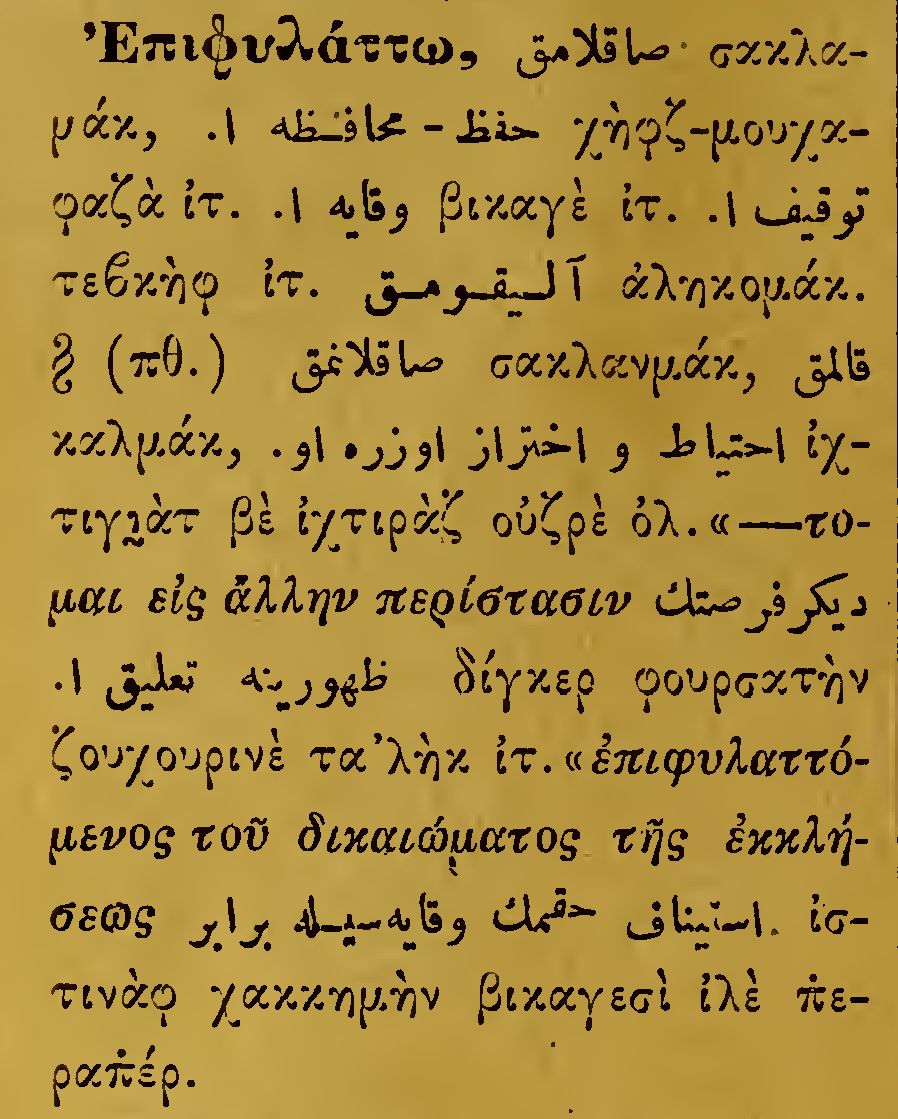 Ἐπιφυλάττω, صاقلامق σακλα-
μάκ, حفظ - محافظه ا. χὴφζ-μουχα-
φαζὰ ἰτ. وقايه ا. βικαγὲ ἰτ. توقيف ا.
τεβκὴφ ἰτ. آليقومق ἀληκομάκ.
§ (πθ.) صاقلانمق σακλανμάκ, قالمق
καλμάκ, احتياط و احتراز اوزره او. ἰχ-
τιγιὰτ βὲ ἰχτιρὰζ οὐζρὲ ὀλ. «—το-
μαι εἰς ἄλλην περίστασιν ديكر فرصتك
ظهورينه تعليق ا. δίγκερ φουρσατὴν
ζουχουρινὲ τα’λὴκ ἰτ. «ἐπιφυλαττό-
μενος τοῦ δικαιώματος τῆς ἐκκλή-
σεως استيناف حقمك وقايه‌سيله برابر. ἰσ-
τινὰφ χακκημὴν βικαγεσὶ ἰλὲ π̇ε-
ραπ̇έρ.